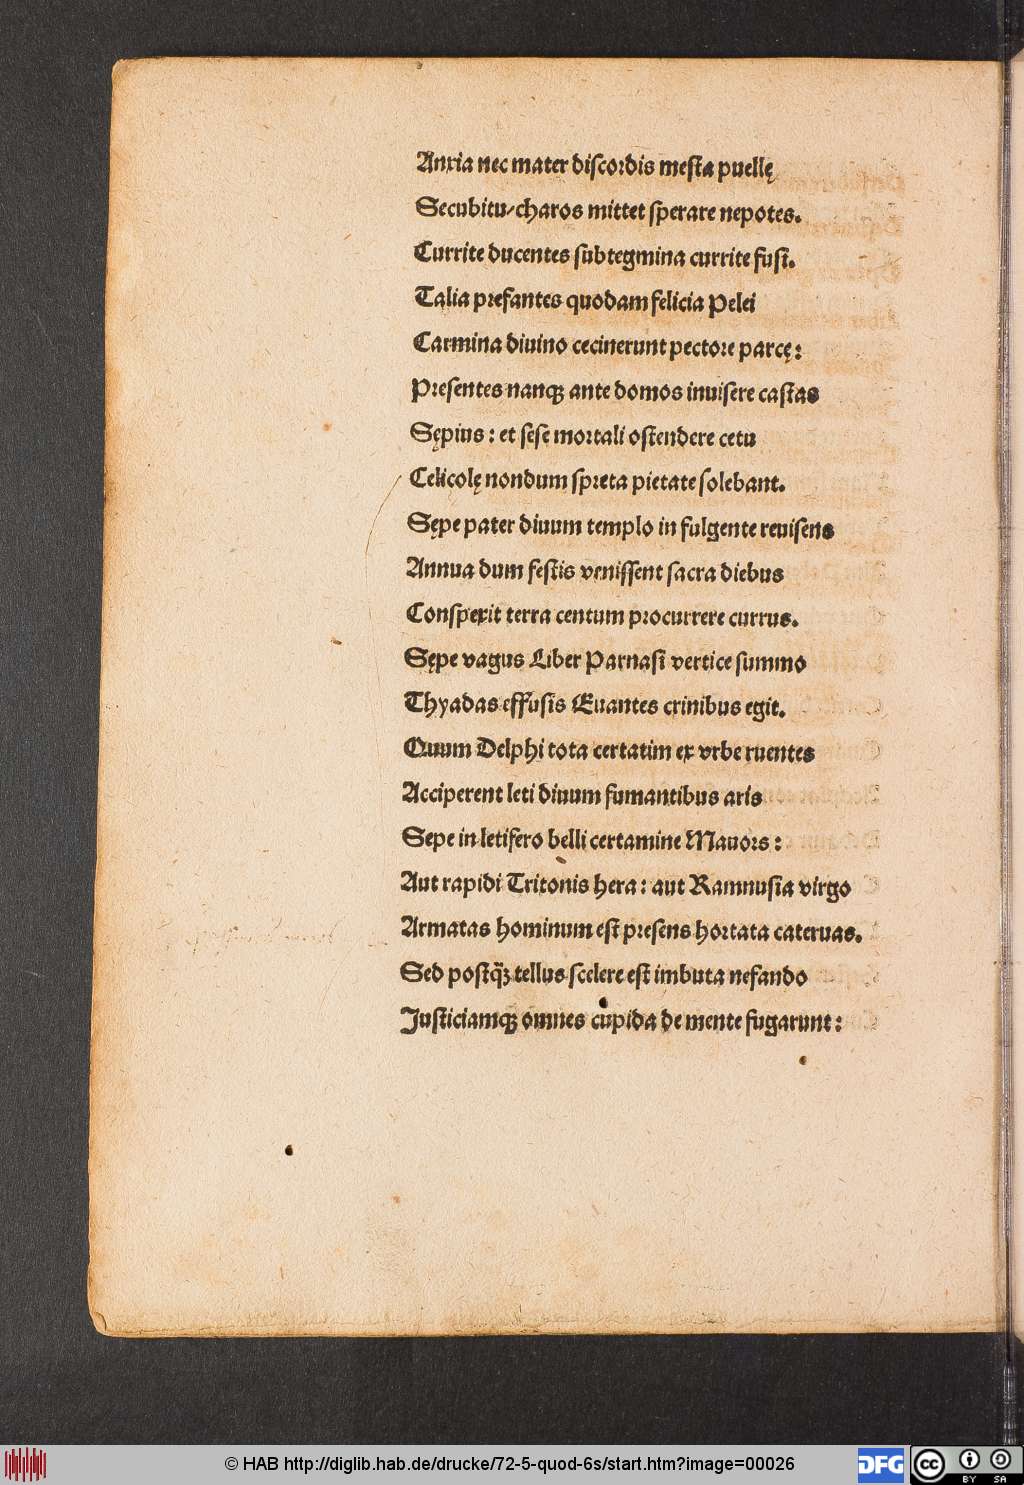 Anxia nec mater discordis mesta puellę
Secubitu/charos mittet sperare nepotes.
Currite ducentes subtegmina currite fusi.
Talia prefantes quodam felicia Pelei
Carmina diuino cecinerunt pectore parcę:
Presentes nanqꝫ ante domos inuisere castas
Sępius: et sese mortali ostendere cetu
Celicolę nondum spreta pietate solebant.
Sępe pater diuum templo in fulgente reuisens
Annua dum festis venissent sacra diebus
Conspexit terra centum procurrere currus.
Sępe vagus Liber Parnasi vertice summo
Thyadas effusis Euantes crinibus egit.
Quum Delphi tota certatim ex vrbe ruentes
Acciperent leti diuum fumantibus aris
Sepe in letifero belli certamine Mauors:
Aut rapidi Tritonis hera: aut Ramnusia virgo
Armatas hominum est presens hortata cateruas.
Sed postq̃ꝫ tellus scelere est imbuta nefando
Justiciamqꝫ omnes cupida de mente fugarunt:
© HAB http://diglib.hab.de/drucke/72-5-quod-6s/start.htm?image=00026
DFG
cc
BY SA